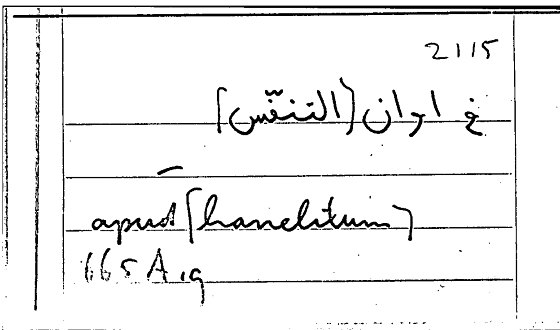 2115
في اوان [التنفّس]
apud [hanelitum]
665 A, 9